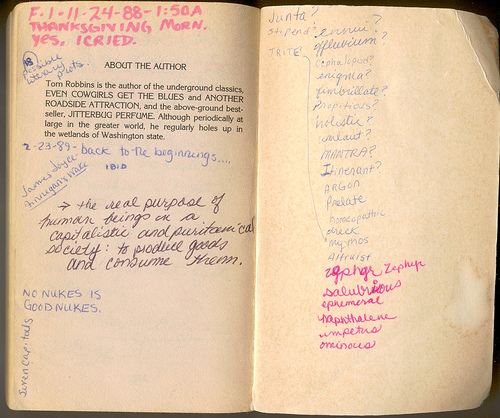 F. 1-11-24-88-1:50A
THANKSGIVING MORN.
Yes, I CRIED.
18
Possible
literary plots.
ABOUT THE AUTHOR
Tom Robbins is the author of the underground classics,
EVEN COWGIRLS GET THE BLUES and ANOTHER
ROADSIDE ATTRACTION, and the above-ground best-
seller, JITTERBUG PERFUME. Although periodically at
large in the greater world, he regularly holes up in
the wetlands of Washington state.
2-23-89-back to the beginnings....
James Joyce
Finnigan's Wake
IBID
→ the real purpose of
human beings in a
capitalistic and puritanical
society: to produce goods
and consume them.
NO NUKES IS
GOOD NUKES.
Seven Capitols
Junta?
Stipend? ennui?
TRITE? effluvium?
Cephalopod?
enigma?
fimbrillate?
Propitious?
holistic?
umlaut?
MANTRA?
Itinerant?
ARGON
Prelate
homeopathic
check
Altruist
zephyr Zephyr
salubrious
ephemeral
naphthalene
impetus
ominous